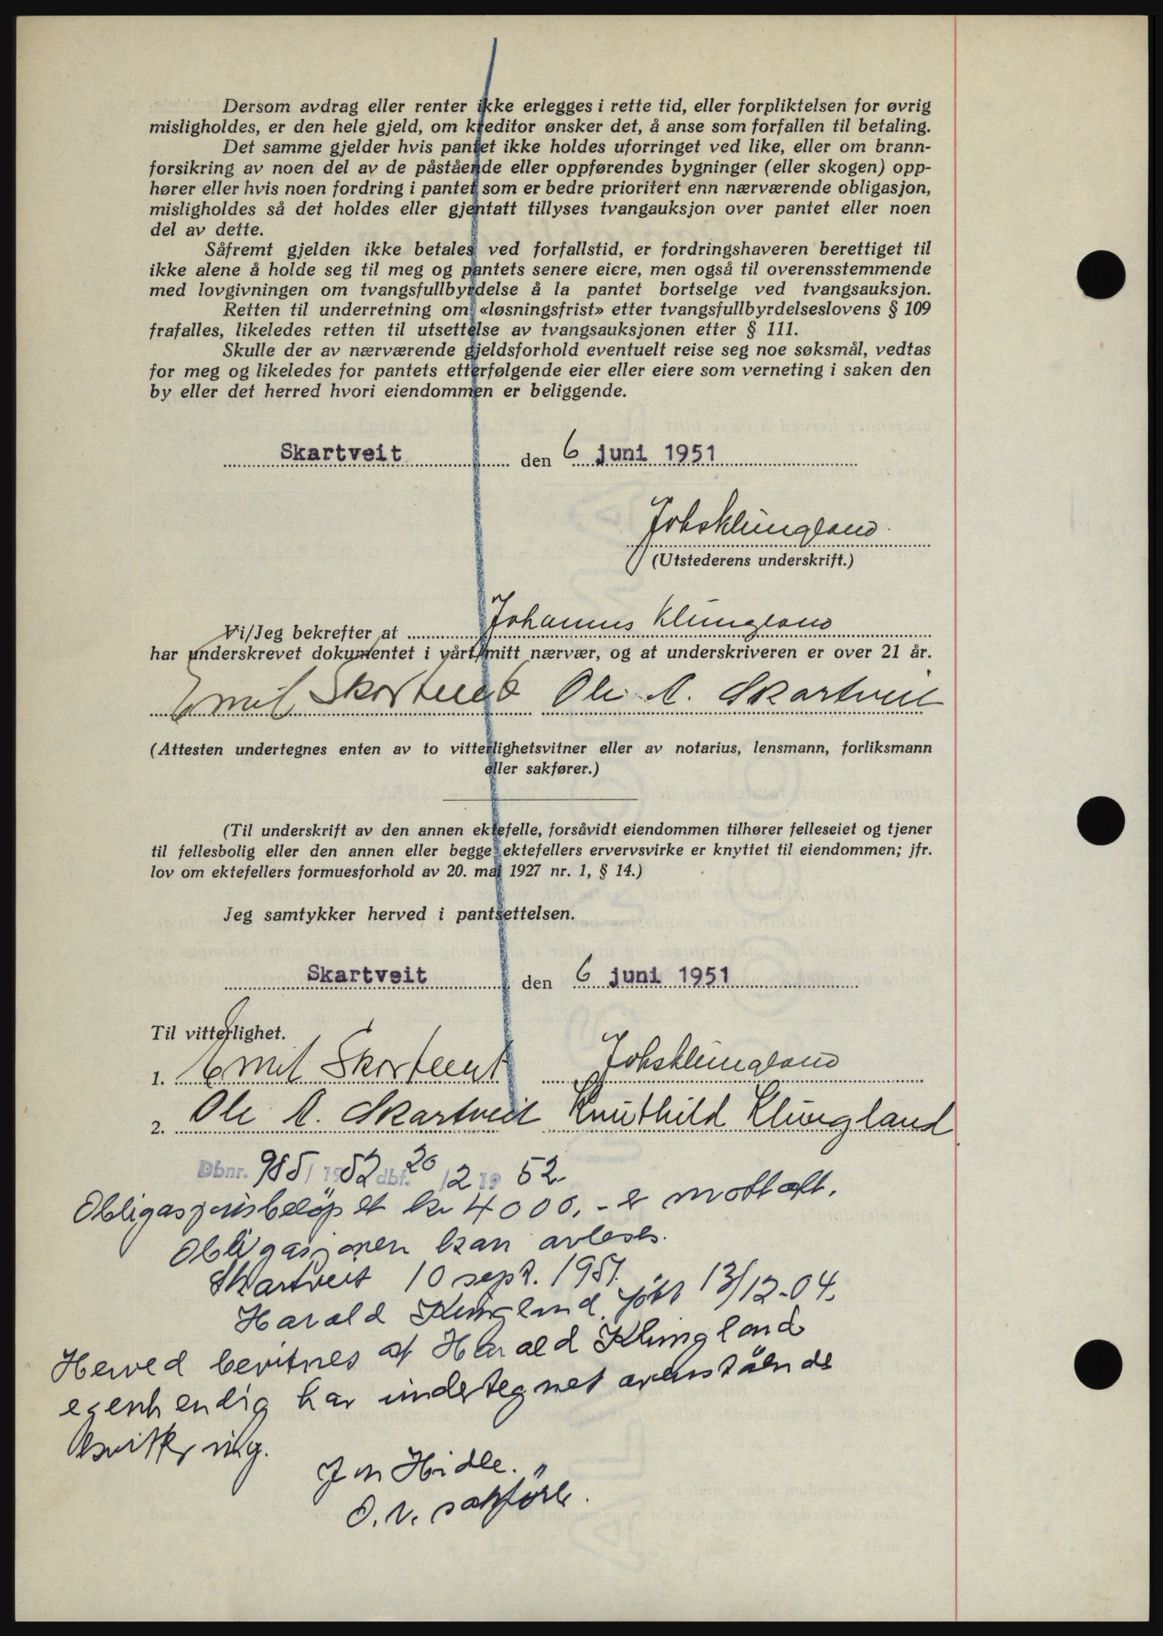 Dersom avdrag eller renter ikke erlegges i rette tid, eller forpliktelsen for øvrig
misligholdes, er den hele gjeld, om kreditor ønsker det, å anse som forfallen til betaling.
Det samme gjelder hvis pantet ikke holdes uforringet ved like, eller om brann-
forsikring av noen del av de påstående eller oppførendes bygninger (eller skogen) opp-
hører eller hvis noen fordring i pantet som er bedre prioritert enn nærværende obligasjon,
misligholdes så det holdes eller gjentatt tillyses tvangauksjon over pantet eller noen
del av dette.
Såfremt gjelden ikke betales ved forfallstid, er fordringshaveren berettiget til
ikke alene å holde seg til meg og pantets senere eiere, men også til overensstemmende
med lovgivningen om tvangsfullbyrdelse å la pantet bortselge ved tvangsauksjon.
Retten til underretning om «løsningsfrist» etter tvangsfullbyrdelseslovens § 109
frafalles, likeledes retten til utsettelse av tvangsauksjonen etter § 111.
Skulle der av nærværende gjeldsforhold eventuelt reise seg noe søksmål, vedtas
for meg og likeledes for pantets etterfølgende eier eller eiere som verneting i saken den
by eller det herred hvori eiendommen er beliggende.
Skartveit den 6 juni 1951
Johs Klungland
(Utstederens underskrift.)
Vi/Jeg bekrefter at Johannes Klungland
har underskrevet dokumentet i vårt/mitt nærvær, og at underskriveren er over 21 år.
Emil Skartveit Ole A. Skartveit
(Attesten undertegnes enten av to vitterlighetsvitner eller av notarius, lensmann, forliksmann
eller sakfører.)
(Til underskrift av den annen ektefelle, forsåvidt eiendommen tilhører felleseiet og tjener
til fellesbolig eller den annen eller begge ektefellers ervervsvirke er knyttet til eiendommen; jfr.
lov om ektefellers formuesforhold av 20. mai 1927 nr. 1, § 14.)
Jeg samtykker herved i pantsettelsen.
Skartveit den 6 juni 1951
Til vitterlighet.
1. Emil Skartveit Johs Klungland
2. Ole A. Skartveit Knuthild Klungland
Dbnr. 985/1952 dbf. 20/2 1952
Obligasjonsbeløpet kr 4000,- er mottatt.
Obligasjonen kan avleses.
Skartveit 10 sept. 1951.
Harald Klungland født 13/12-04.
Herved bevitnes at Harald Klungland
egenhendig har undertegnet ovenstående
kvittering.
Jon Hidle.
O.r. sakfører.